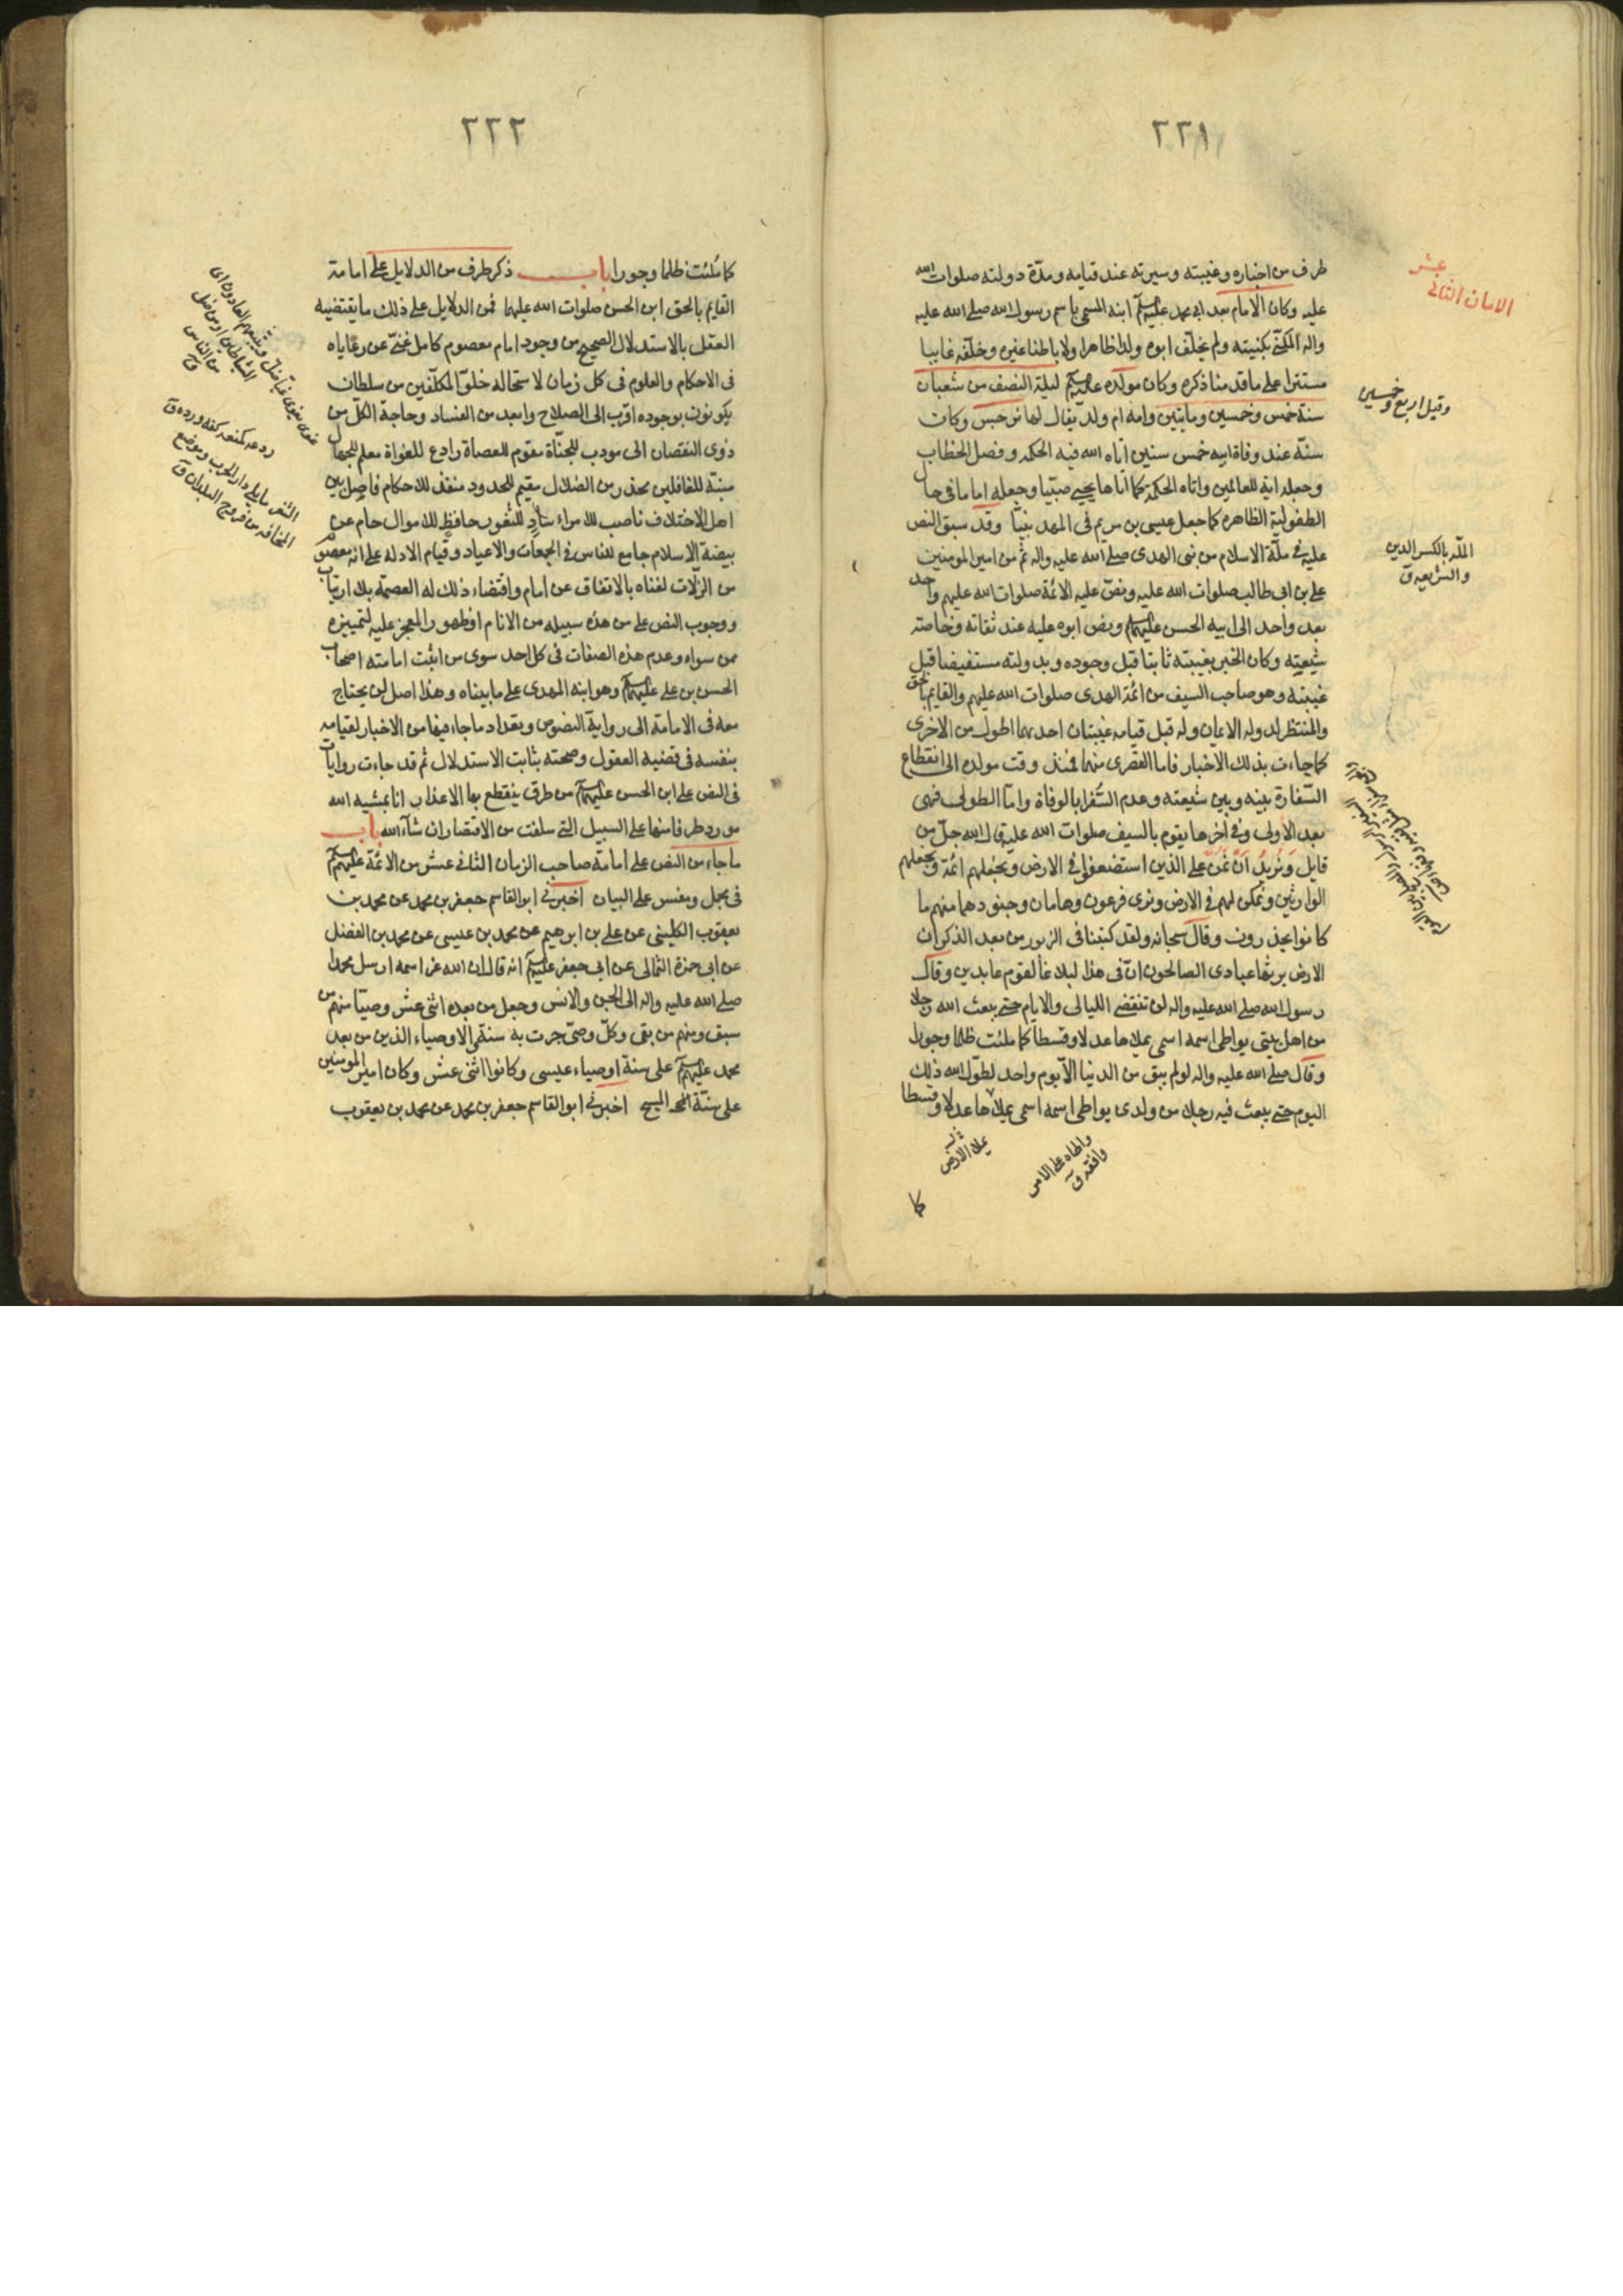 ٢٢١
طرف من اخباره وغيبته وسيرته عند قيامه ومدّة دولته صلوات الله
عليه وكان الامام بعد ابى محمد عليهم ابنه المسمى باسم رسول الله صلى الله عليه
واله المكنّى بكنيته ولم يخلّف ابوه ولدا ظاهرا ولا باطنا غيره وخلّفه غايبا
مستترا على ما قدمنا ذكره وكان مولده عليه ليلة النصف من شعبان
سنة خمس وخمسين ومايتين وامه ام ولد يقال لها نرجس وكان
سنّه عند وفاة ابيه خمس سنين اتاه الله فيه الحكمه وفصل الخطاب
وجعله اية للعالمين واتاه الحكمة كما اتاها يحيى صبيّا وجعله اماما فى حال
الطفولية الظاهره كما جعل عيسى بن مريم فى المهد نبيّا وقد سبق النص
عليه فى ملّة الاسلام من نبى الهدى صلى الله عليه واله ثم من امير المومنين
على بن ابى طالب صلوات الله عليه ونصّ عليه الائمة صلوات الله عليهم واحد
بعد واحد الى ابيه الحسن عليهم ونص ابوه عليه عند ثقاته وخاصته
شيعته وكان الخبر بغيبته ثابتا قبل وجوده وبدولته مستفيضا قبل
غيبته وهو صاحب السيف من ائمة الهدى صلوات الله عليهم والقايم بالحق
والمنتظر لدولة الايمان وله قبل قيامه غيبتان احديهما اطول من الاخرى
كما جاءت بذلك الاخبار فاما القصرى منهما فمنذ وقت مولده الى انقطاع
السّفارة بينه وبين شيعته وعدم السّفرا بالوفاة وامّا الطولى فهى
بعد الاولى وفى اخرها يقوم بالسيف صلوات الله عليه قال الله جلّ من
قايل وَنُريدُ اَنْ نَمُنَّ على الذين استضعفوا فى الارض ونجعلهم ائمّة ونجعلهم
الوارثين ونمكن لهم فى الارض ونرى فرعون وهامان وجنودهما منهم ما
كانوا يحذرون وقال سبحانه ولقد كتبنا فى الزبور من بعد الذكر ان
الارض يرثها عبادى الصالحون انّ فى هذا لبلاغا لقوم عابدين وقال
رسول الله صلى الله عليه واله لن تنقضى الليالى والايام حتى يبعث الله رجلا
من اهل بيتى يواطى اسمه اسمى يملاها عدلا وقسطا كما ملئت ظلما وجورا
وقال صلى الله عليه واله لو لم يبق من الدنيا الّا يوم واحد لطوّل الله ذلك
اليوم حتى يبعث فيه رجلا من ولدى يواطى اسمه اسمى يملاها عدلا وقسطا
يملا الارض
واطاه على الامر
وافقه ق
كما
الامان الثانى عشر
وقيل اربع وخمسين
الملّه بالكسر الدين
والشريعه ق
٢٢٢
كما مُلئت ظلما وجورا باب ذكر طرف من الدلايل على امامة
القايم بالحق ابن الحسن صلوات الله عليهما فمن الدلايل على ذلك ما يقتضيه
العقل بالاستدلال الصحيح من وجود امام معصوم كامل غنىّ عن رعاياه
فى الاحكام والعلوم فى كل زمان لاستحاله خلوّ المكلّفين من سلطان
يكونون بوجوده اقرب الى الصلاح وابعد من الفساد وحاجة الكلّ من
ذوى النقصان الى مودب للجناة مقوم للعصاة رادع للغواة معلم للجهال
منبّه للغافلين محذر من الضلال مقيم للحدود منفذ للاحكام فاصل بين
اهل الاختلاف ناصب للامراء سادٍ للثغور حافظٍ للاموال حام عن
بيضة الاسلام جامع للناس فى الجمعات والاعياد وقيام الادله على انه معصوم
من الزلّات لغناه بالاتفاق عن امام واقتضاء ذلك له العصمة بلا ارتياب
ووجوب النص على من هذه سبيله من الانام او ظهور المعجز عليه لتمييزه
ممن سواه وعدم هذه الصفات فى كل احد سوى من اثبت امامته اصحاب
الحسن بن على عليهم وهو ابنه المهدى على ما بيناه وهذا اصل لن يحتاج
معه فى الامامة الى رواية النصوص وتعداد ما جاء فيها من الاخبار لقيامه
بنفسه فى قضيه العقول وصحته بثابت الاستدلال ثم قد جاءت روايات
فى النص على ابن الحسن عليهم من طرق ينقطع بها الاعذار انا بمشيه الله
مورد طرفا منها على السبيل التى سلفت من الاقتصار ان شآء الله باب
ما جاء من النص على امامة صاحب الزمان الثانى عشر من الائمّة عليهم
فى مجمل ومفسر على البيان اخبرنى ابو القاسم جعفر بن محمد عن محمد بن
يعقوب الكلينى عن على بن ابرهيم عن محمد بن عيسى عن محمد بن الفضل
عن ابى حمزة الثمالى عن ابى جعفر عليهم انه قال ان الله عز اسمه ارسل محمدا
صلى الله عليه واله الى الجن والانس وجعل من بعده اثنى عشر وصيّا منهم من
سبق ومنهم من بقى وكلّ وصىّ جرت به سنة والاوصياء الذين من بعد
محمد عليهم على سنة اوصياء عيسى وكانوا اثنى عشر وكان امير المومنين
على سنّة المسيح اخبرنى ابو القاسم جعفر بن محمد عن محمد بن يعقوب
ردعه كمنعه كفه ورده ق
الثغر ما يلى دار الحرب وموضع
المخافه من فروج البلدان ق